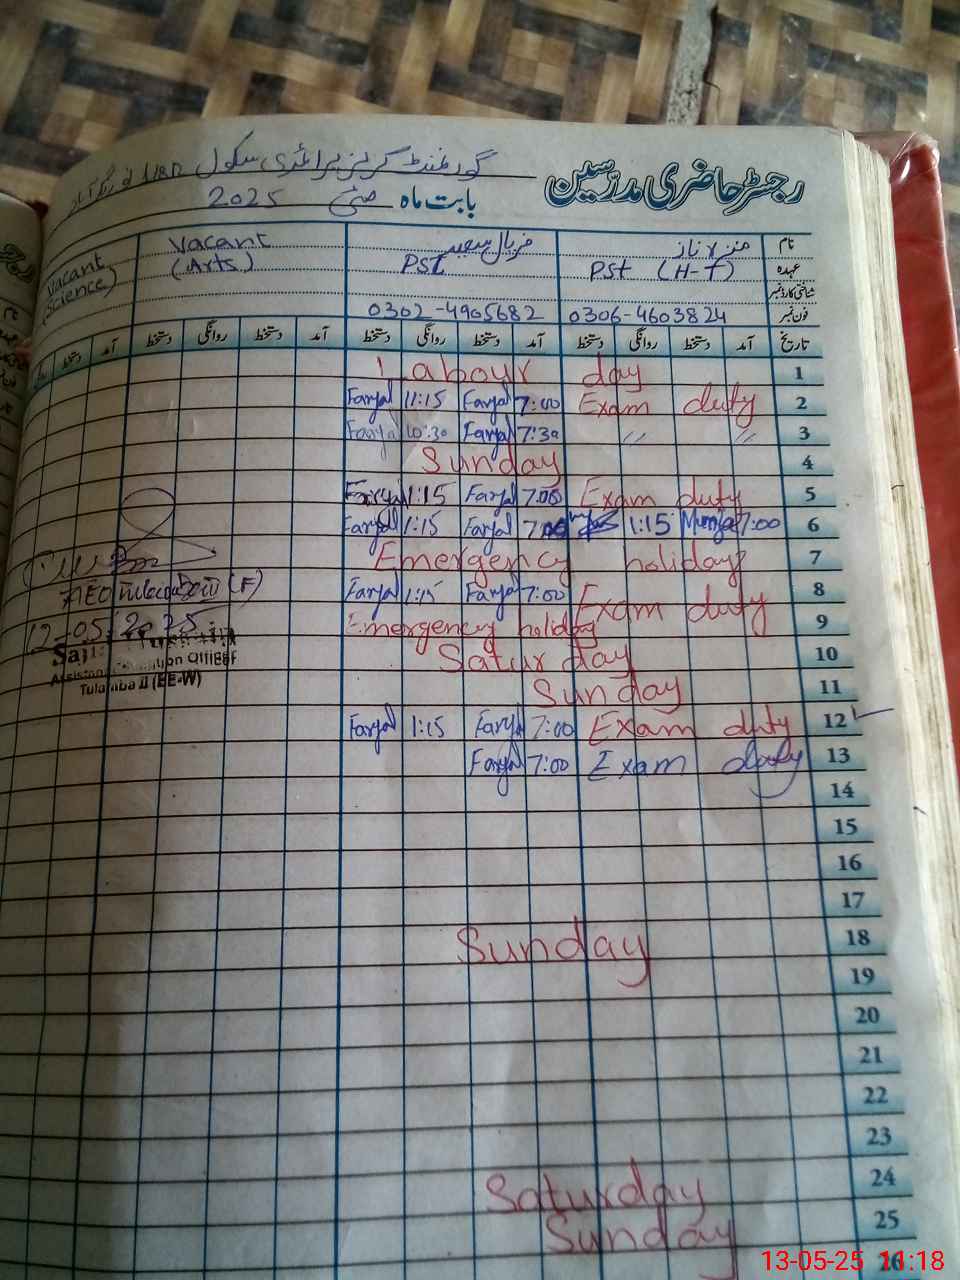 رجسٹر حاضری مدرسین
گورنمنٹ گرلز پرائمری سکول
بابت ماہ مئی 2025
نام ناز فریال سعید Vacant Vacant
عہدہ PST (H-T) PST (Arts) (Science)
شناختی کارڈ نمبر
فون نمبر 0306-4603824 0302-4905682
تاریخ آمد دستخط روانگی دستخط آمد دستخط روانگی دستخط آمد دستخط روانگی دستخط آمد دستخط
Labour day 1
Faryal 11:15 Faryal 7:00 Exam duty 2
Faryal 10:30 Faryal 7:30 〃 〃 3
Sunday 4
Faryal 1:15 Faryal 7:00 Exam duty 5
Faryal 1:15 Faryal 7:00 1:15 7:00 6
Emergency holiday 7
Faryal 1:15 Faryal 7:00 Exam duty 8
Emergency holiday 9
Saturday 10
Sunday 11
Faryal 1:15 Faryal 7:00 Exam duty 12
Faryal 7:00 Exam duty 13
14
15
16
17
Sunday 18
19
20
21
22
23
Saturday 24
Sunday 25
26
AEO (F)
12-05-2025
Tulamba II (EE-W)
13-05-25 11:18